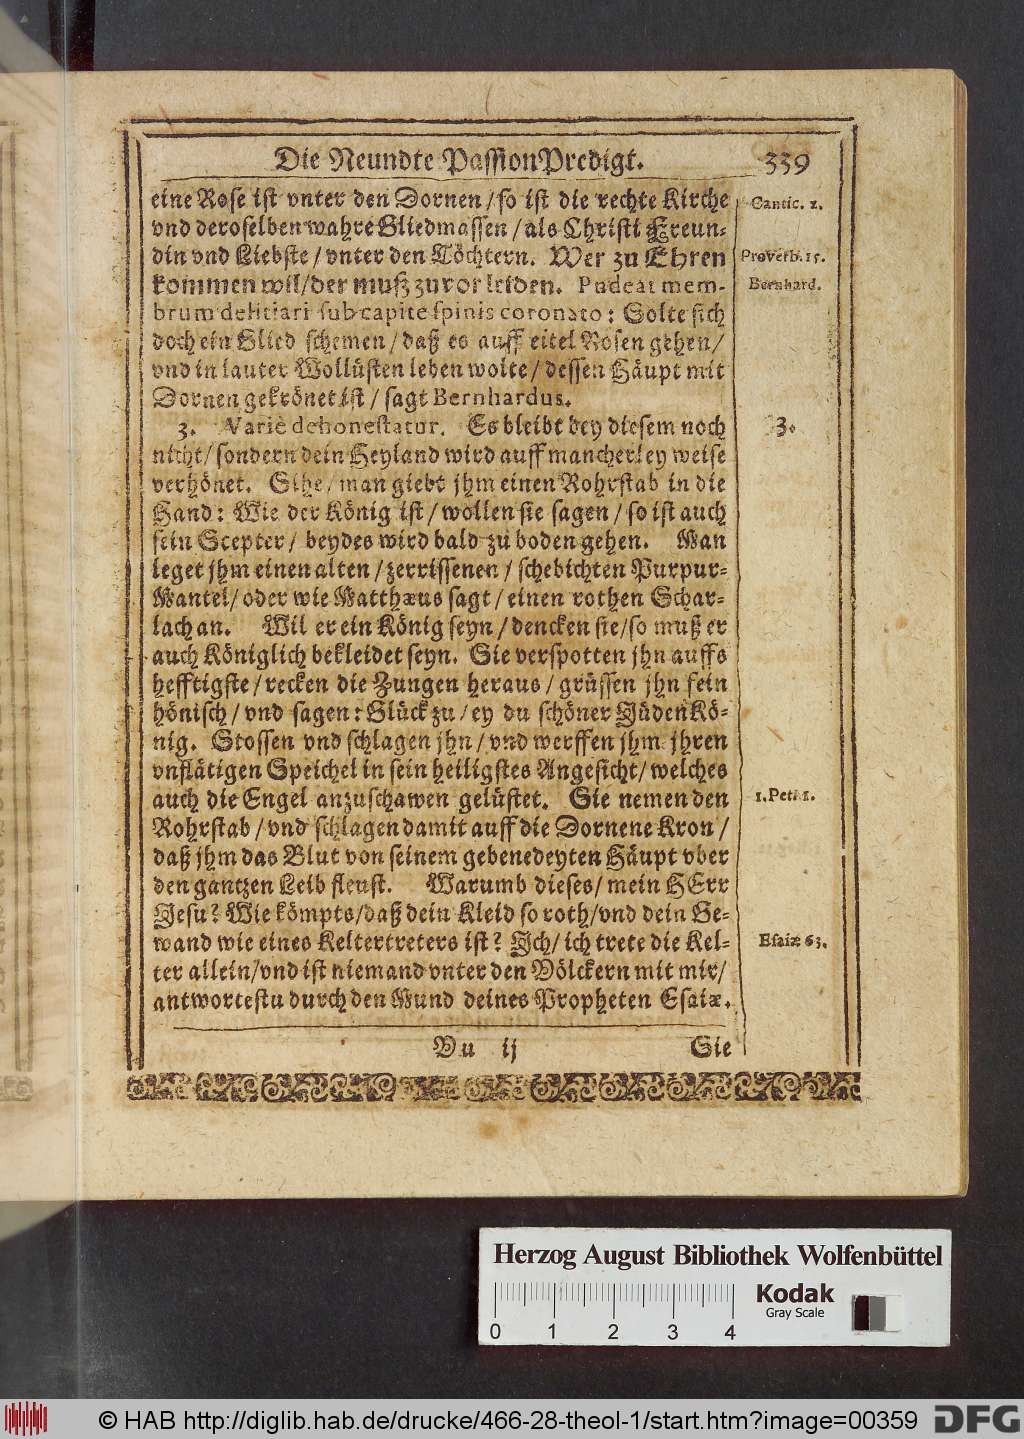 Die Neundte PassionPredigt. 339
eine Rose ist vnter den Dornen/so ist die rechte Kirche
vnd deroselben wahre Gliedmassen/als Christi Freun-
din vnd Liebste/vnter den Töchtern. Wer zu Ehren
kommen wil/der muß zuvor leiden. Pudeat mem-
brum delitiari sub capite spinis coronato: Solte sich
doch ein Glied schemen/daß es auff eitel Rosen gehen/
vnd in lauter Wollüsten leben wolte/dessen Häupt mit
Dornen gekrönet ist/sagt Bernhardus.
3. Variè dehonestatur. Es bleibt bey diesem noch
nicht/sondern dein Heyland wird auff mancherley weise
verhönet. Sihe/man giebt jhm einen Rohrstab in die
Hand: Wie der König ist/wollen sie sagen/so ist auch
sein Scepter/beydes wird bald zu boden gehen. Man
leget jhm einen alten/zerrissenen/schebichten Purpur-
Mantel/oder wie Matthæus sagt/einen rothen Schar-
lach an. Wil er ein König seyn/dencken sie/so muß er
auch Königlich bekleidet seyn. Sie verspotten jhn auffs
hefftigste/recken die Zungen heraus/grüssen jhn fein
hönisch/vnd sagen: Glück zu/ey du schöner JüdenKö-
nig. Stossen vnd schlagen jhn/vnd werffen jhm jhren
vnflätigen Speichel in sein heiligstes Angesicht/welches
auch die Engel anzuschawen gelüstet. Sie nemen den
Rohrstab/vnd schlagen damit auff die Dornene Kron/
daß jhm das Blut von seinem gebenedeyten Häupt vber
den gantzen Leib fleust. Warumb dieses/mein HErr
Jesu? Wie kömpts/daß dein Kleid so roth/vnd dein Ge-
wand wie eines Keltertreters ist? Jch/ich trete die Kel-
ter allein/vnd ist niemand vnter den Völckern mit mir/
antwortestu durch den Mund deines Propheten Esaiæ.
Vu ij Sie
Cantic. 2.
Proverb. 15.
Bernhard.
3.
1. Pet. 1.
Esaiæ 63.
Herzog August Bibliothek Wolfenbüttel
Kodak
Gray Scale
0 1 2 3 4
© HAB http://diglib.hab.de/drucke/466-28-theol-1/start.htm?image=00359
DFG